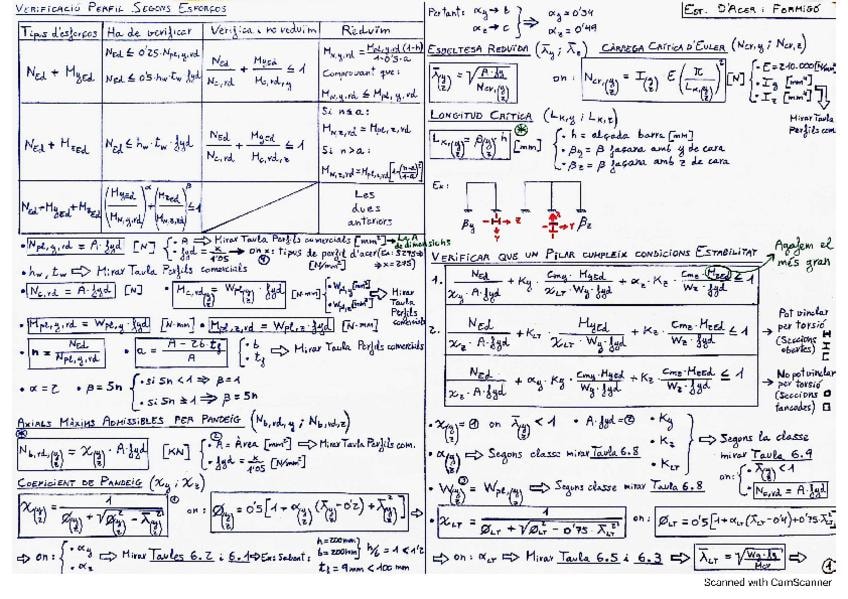 VERIFICACIÓ PERFIL SEGONS ESFORÇOS
Tipus d'esforços | Ha de verificar | Verifica i no reduim | Reduim
N_Ed + M_yEd | N_Ed ≤ 0'25·N_pl,y,rd
N_Ed ≤ 0'5·h_w·t_w·f_yd | N_Ed/N_c,rd + M_yEd/M_c,rd,y ≤ 1 | M_N,y,rd = M_pl,y,rd(1-n)/1-0'5·a
Comprovant que:
M_N,y,rd ≤ M_pl,y,rd
N_Ed + M_zEd | N_Ed ≤ h_w·t_w·f_yd | Si n≤a:
M_N,z,rd = M_pl,z,rd
Si n>a:
N_Ed+M_yEd+M_zEd | (M_yEd/M_N,y,rd)^α + (M_zEd/M_N,z,rd)^β ≤ 1 | Les
dues
anteriors
• N_pl,y,rd = A·f_yd [N]
• A ⇒ Mirar Taula Perfils comercials [mm²]
[N/mm²]
• h_w, t_w ⇒ Mirar Taula Perfils comercials
• N_c,rd = A·f_yd [N]
[N·mm]
⇒ Mirar
Taula
Perfils
comercials
• M_pl,y,rd = W_pl,y·f_yd [N·mm] • M_pl,z,rd = W_pl,z·f_yd [N·mm]
• n = N_Ed/N_pl,y,rd • a = A - 2b·t_f/A • b
• t_f ⇒ Mirar Taula Perfils comercials
• α = 2 • β = 5n • si 5n < 1 ⇒ β = 1
• si 5n ≥ 1 ⇒ β = 5n
AXIALS MÀXIMS ADMISSIBLES PER PANDEIG (N_b,rd,y i N_b,rd,z)
N_b,rd,(y/z) = χ(y/z)·A·f_yd [KN]
• A = Àrea [mm²] ⇒ Mirar Taula Perfils com.
• f_yd = x/1'05 [N/mm²]
COEFICIENT DE PANDEIG (χy i χz)
on:
⇒ on: • αy
• αz ⇒ Mirar Taules 6.2 i 6.1
h = 200mm
b = 200mm
h/b = 1 < 1'2
t_f = 9mm < 100mm
EST. D'ACER I FORMIGÓ
Pertant: αy → b
αz → c ⇒ αy = 0'34
αz = 0'49
ESBELTESA REDUÏDA (λ̄y i λ̄z)
CÀRREGA CRÍTICA D'EULER (N_cr,y i N_cr,z)
λ̄(y/z) = √(A·fy/N_cr,(y/z)) on: N_cr,(y/z) = I(y/z)·E(π/L_K,(y/z))² [N]
• Iy [mm⁴]
• Iz [mm⁴]
Mirar Taula
Perfils com.
LONGITUD CRÍTICA (L_K,y i L_K,z)
L_K,(y/z) = β(y/z)·h [mm]
• h = alçada barra [mm]
• βy = β façana amb y de cara
• βz = β façana amb z de cara
Ex:
βy
βz
VERIFICAR QUE UN PILAR CUMPLEIX CONDICIONS ESTABILITAT
Agafem el
més gran
1. N_Ed/χy·A·f_yd + Ky·C_my·M_yEd/χ_LT·Wy·f_yd + αz·Kz·C_mz·M_zEd/Wz·f_yd ≤ 1
2. N_Ed/χz·A·f_yd + K_LT·M_yEd/χ_LT·Wy·f_yd + Kz·C_mz·M_zEd/Wz·f_yd ≤ 1
⇒ Pot vinclar
per torsió
(Seccions
obertes)
N_Ed/χz·A·f_yd + αy·Ky·C_my·M_yEd/Wy·f_yd + Kz·C_mz·M_zEd/Wz·f_yd ≤ 1
⇒ No pot vinclar
per torsió
(Seccions
tancades)
• Ky
• Kz
• K_LT
⇒ Segons la classe
mirar Taula 6.9
on:
• N_c,rd = A·f_yd
• α(y/z) ⇒ Segons classe mirar Taula 6.8
• W(y/z) = W_pl(y/z) ⇒ Segons classe mirar Taula 6.8
• χ_LT = 1/Ø_LT + √(Ø_LT² - 0'75·λ̄_LT²) on: Ø_LT = 0'5[1+α_LT(λ̄_LT-0'4)+0'75·
⇒ on: α_LT ⇒ Mirar Taula 6.5 i 6.3
1
Scanned with CamScanner